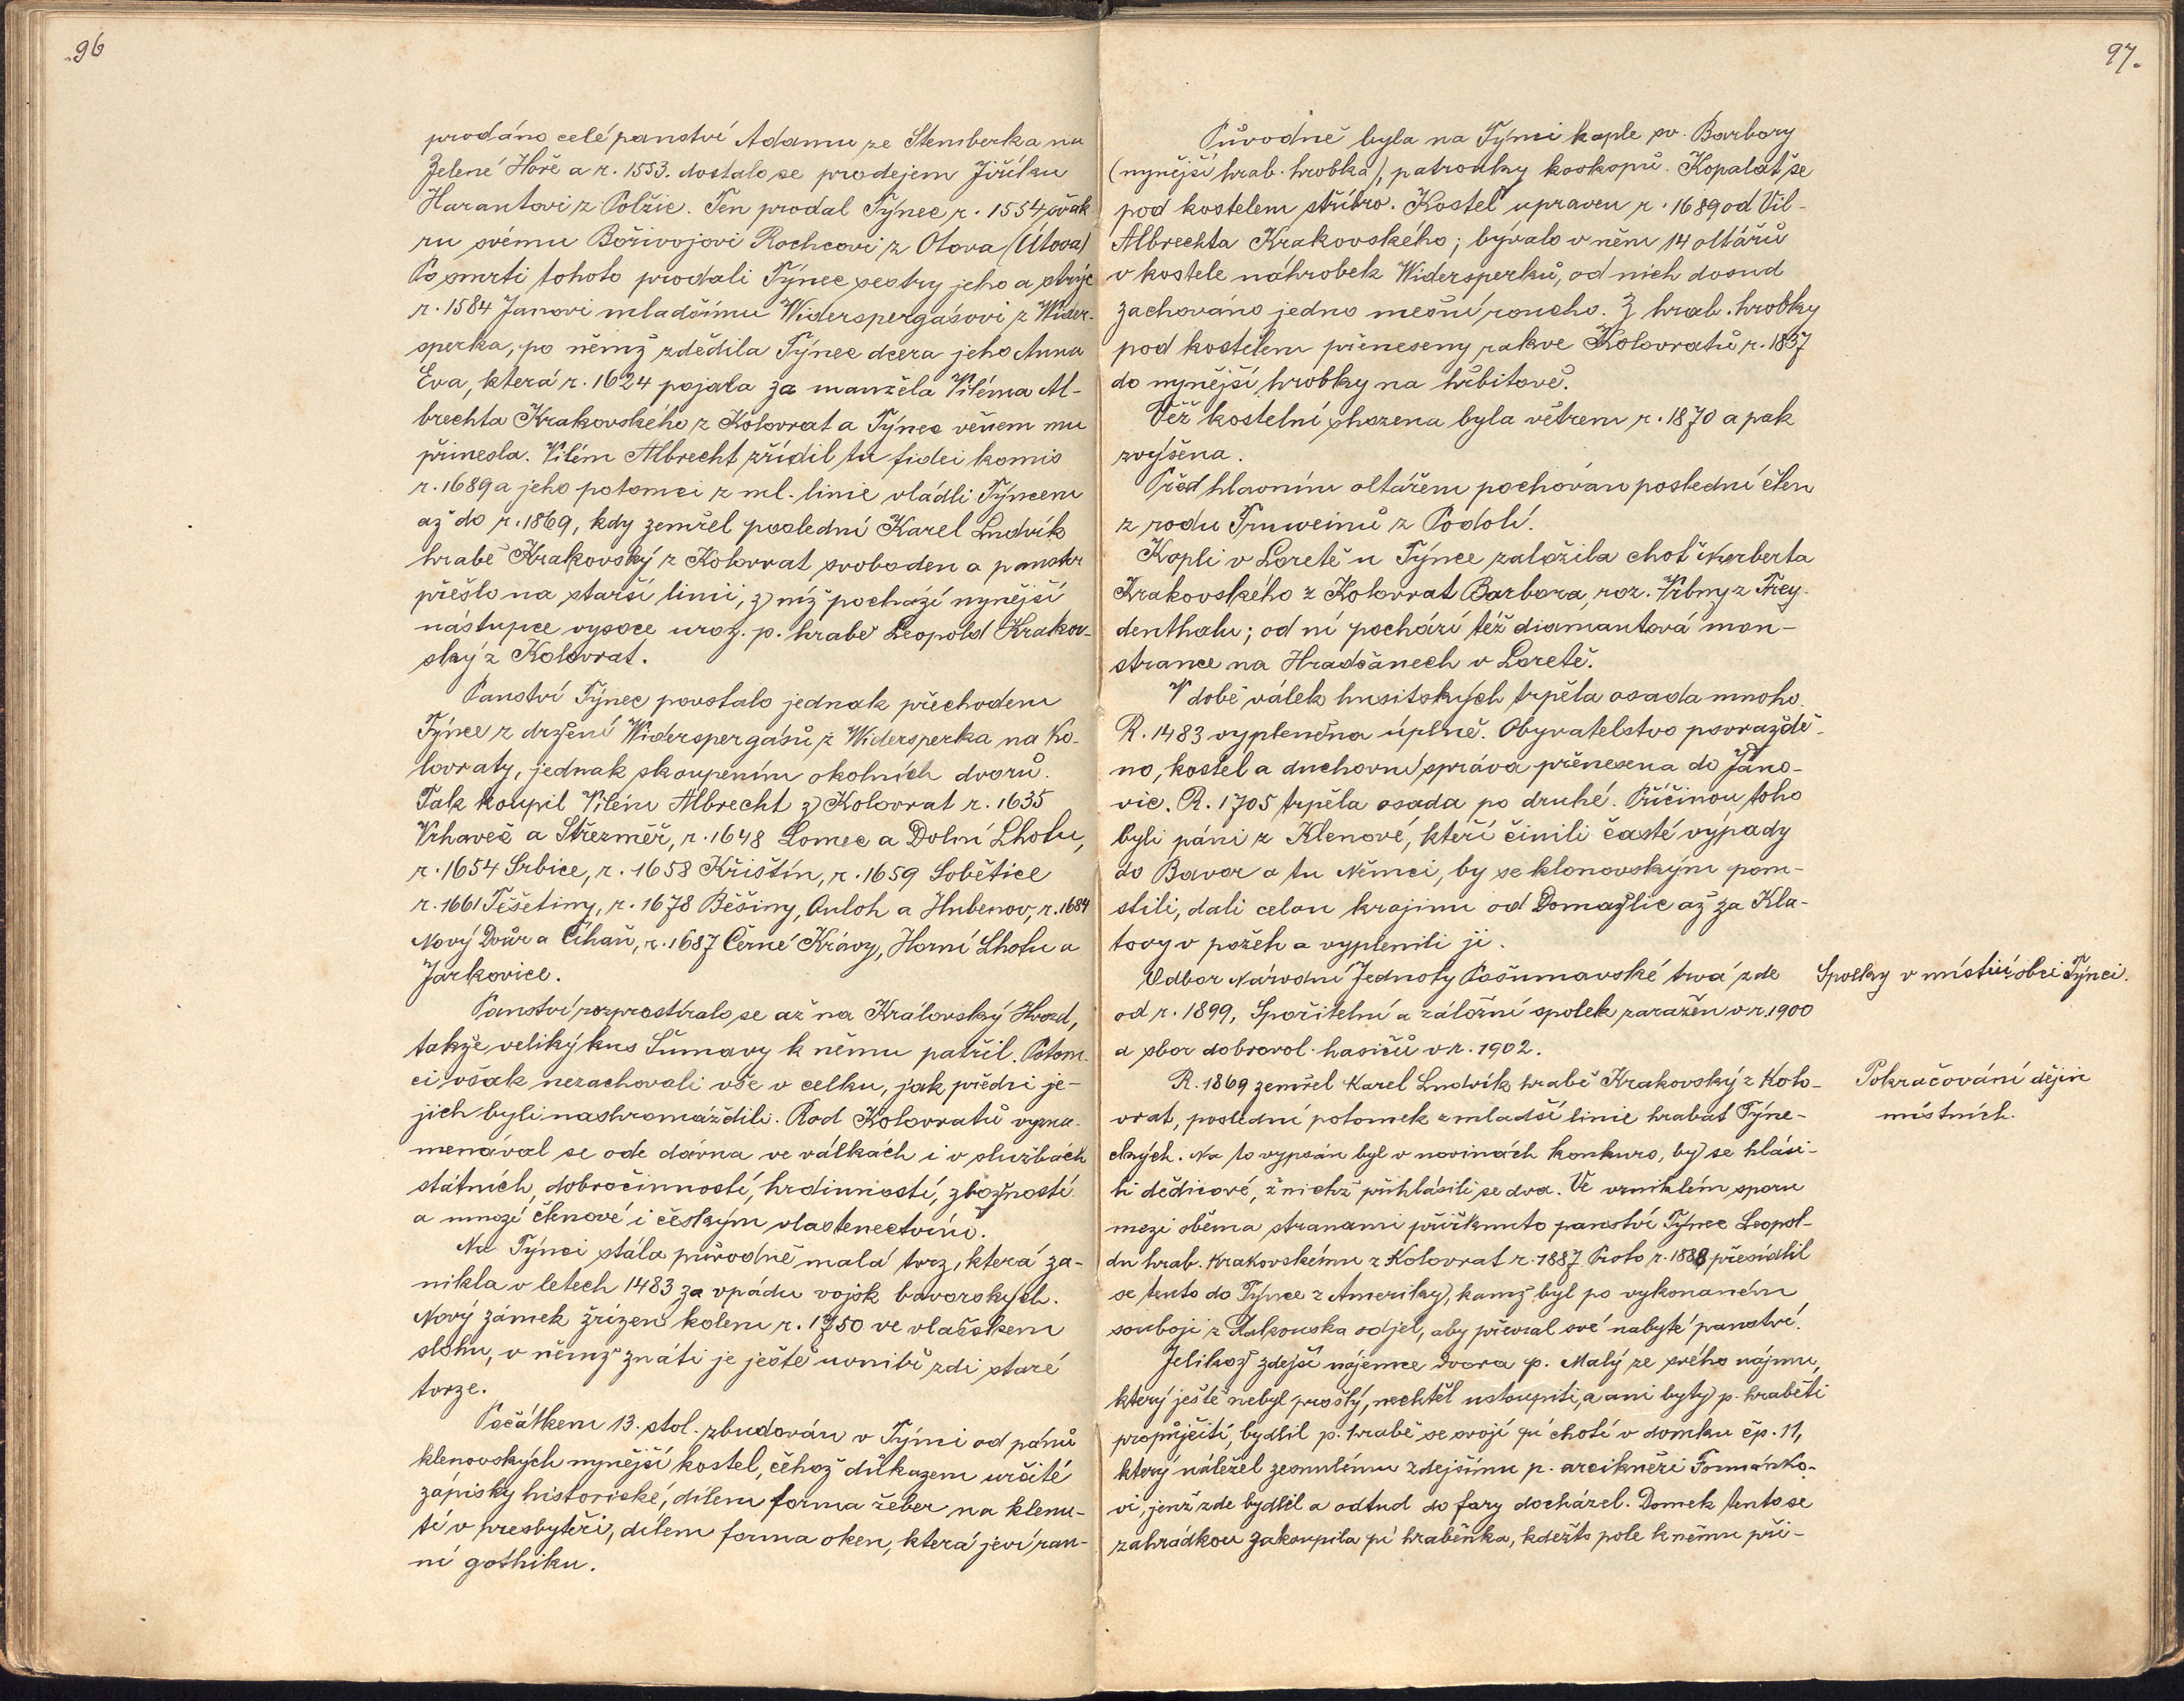 96
prodáno celé panství Adamu ze Stemberka na
Zelené Hoře a r. 1553. dostalo se prodejem Jiříku
Harantovi z Polžic. Ten prodal Týnec r. 1554 švak
ru svému Bořivojovi Rochcovi z Otova (Útova)
Po smrti tohoto prodali Týnec sestry jeho a strýc
r. 1584 Janovi mladšímu Widerspergásovi z Wider-
sperka, po němž zdědila Týnec dcera jeho Anna
Eva, která r. 1624 pojala za manžela Viléma Al-
brechta Krakovského z Kolovrat a Týnec věnem mu
přinesla. Vilém Albrecht zřídil tu fidei komis
r. 1689 a jeho potomci z ml. linie vládli Týncem
až do r. 1869, kdy zemřel poslední Karel Ludvík
hrabě Krakovský z Kolovrat svoboden a panství
přešlo na starší linii, z níž pochází nynější
nástupce vysoce uroz. p. hrabě Leopold Krakov-
ský z Kolovrat.
Panství Týnec povstalo jednak přechodem
Týnce z držení Widerspergásů z Widersperka na Ko-
lovraty, jednak skoupením okolních dvorů.
Tak koupil Vilém Albrecht z Kolovrat r. 1635
Vrhaveč a Střezměř, r. 1648 Lomec a Dolní Lhotu,
r. 1654 Srbice, r. 1658 Křištín, r. 1659 Sobětice
r. 1661 Těšetiny, r. 1678 Běšiny, Auloh a Hubenov, r. 1684
Nový Dvůr a Číhaň, r. 1687 Černé Krávy, Horní Lhotu a
Jarkovice.
Panství rozprostíralo se až na Královský Hvozd,
takže veliký kus Šumavy k němu patřil. Potom-
ci však nezachovali vše v celku, jak předci je-
jich byli nashromáždili. Rod Kolovratů vyzna-
menával se ode dávna ve válkách i v službách
státních, dobročinností, hrdinností, zbožností
a mnozí členové i českým vlastenectvím.
Na Týnci stála původně malá tvrz, která za-
nikla v letech 1483 za vpádu vojsk bavorských.
Nový zámek zřízen kolem r. 1750 ve vlašském
slohu, v němž znáti je ještě uvnitř zdi staré
tvrze.
Počátkem 13. stol. zbudován v Týnci od pánů
klenovských nynější kostel, čehož důkazem určité
zápisky historické, dílem forma žeber na klenu-
tí v presbytěři, dílem forma oken, která jeví ran-
ní gothiku.
97.
Původně byla na Týnci kaple sv. Barbory
(nynější hrab. hrobka), patronky kovkopů. Kopalať se
pod kostelem stříbro. Kostel upraven r. 1689 od Vil-
Albrechta Krakovského; bývalo v něm 14 oltářů
v kostele náhrobek Widersperků, od nich dosud
zachováno jedno mešní roucho. Z hrab. hrobky
pod kostelem přeneseny rakve Kolovratů r. 1837
do nynější hrobky na hřbitově.
Věž kostelní shozena byla větrem r. 1870 a pak
zvýšena.
Před hlavním oltářem pochován poslední člen
z rodu Trnweinů z Podolí.
Kapli v Loretě u Týnce založila choť Norberta
Krakovského z Kolovrat Barbora, roz. Vrbny z Frey-
denthalu; od ní pochází též diamantová mon-
strance na Hradčanech v Loretě.
V době válek husitských trpěla osada mnoho.
R. 1483 vypleněna úplně. Obyvatelstvo povraždě-
no, kostel a duchovní správa přenesena do Jano-
vic. R. 1705 trpěla osada po druhé. Příčinou toho
byli páni z Klenové, kteří činili časté výpady
do Bavor a tu Němci, by se klenovským pom-
stili, dali celou krajinu od Domažlic až za Kla-
tovy v požeh a vyplenili ji.
Odbor Národní Jednoty Pošumavské trvá zde
od r. 1899, Spořitelní a záložní spolek zaražen v r. 1900
a sbor dobrovol. hasičů v r. 1902.
Spolky v místní obci Týnci.
R. 1869 zemřel Karel Ludvík hrabě Krakovský z Kolo-
vrat, poslední potomek z mladší linie hrabat Týne-
ckých. Na to vypsán byl v novinách konkurs, by se hlási-
li dědicové, z nichž přihlásili se dva. Ve vzniklém sporu
mezi oběma stranami přiřknuto panství Týnec Leopol-
du hrab. Krakovskému z Kolovrat r. 1887 Proto r. 1888 přesídlil
se tento do Týnce z Ameriky, kamž byl po vykonaném
souboji z Rakouska odjel, aby převzal své nabyté panství.
Pokračování dějin
místních.
Jelikož zdejší nájemce dvora p. Malý ze svého nájmu,
který ještě nebyl prošlý, nechtěl ustoupiti, a ani byty p. hraběti
propůjčiti, bydlil p. hrabě se svojí pí chotí v domku čp. 11,
který náležel zesnulému zdejšímu p. arcikněži Formánko-
vi, jenž zde bydlil a odtud do fary docházel. Domek tento se
zahrádkou zakoupila pí hraběnka, kdežto pole k němu při-